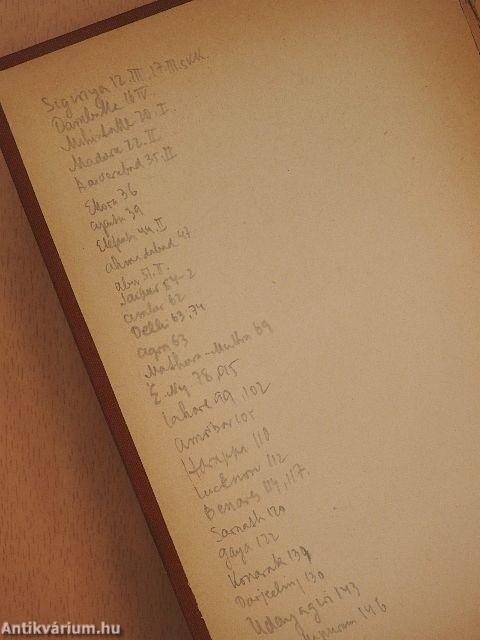 Sigiriya 12.III, 17.III.
Dambulla 16 IV.
Mihintalle 20.I.
Madura 22.II
35.II
Ellora 36
ajanta 39
Elefanta 44.II
ahmedabad 47
abu 51.II.
Jaipur 54-2
ambar 62
Delhi 63,74
agra 63
Mathura-Muttra 69
É. Ny 78,95
Lahore 99,102
105
Harappa 110
Lucknow 112
Benares 114,117.
Sarnath 120
Gaya 122
Konarak 139
Darjeeling 130
Udayagiri 143
146
Antikvárium.hu